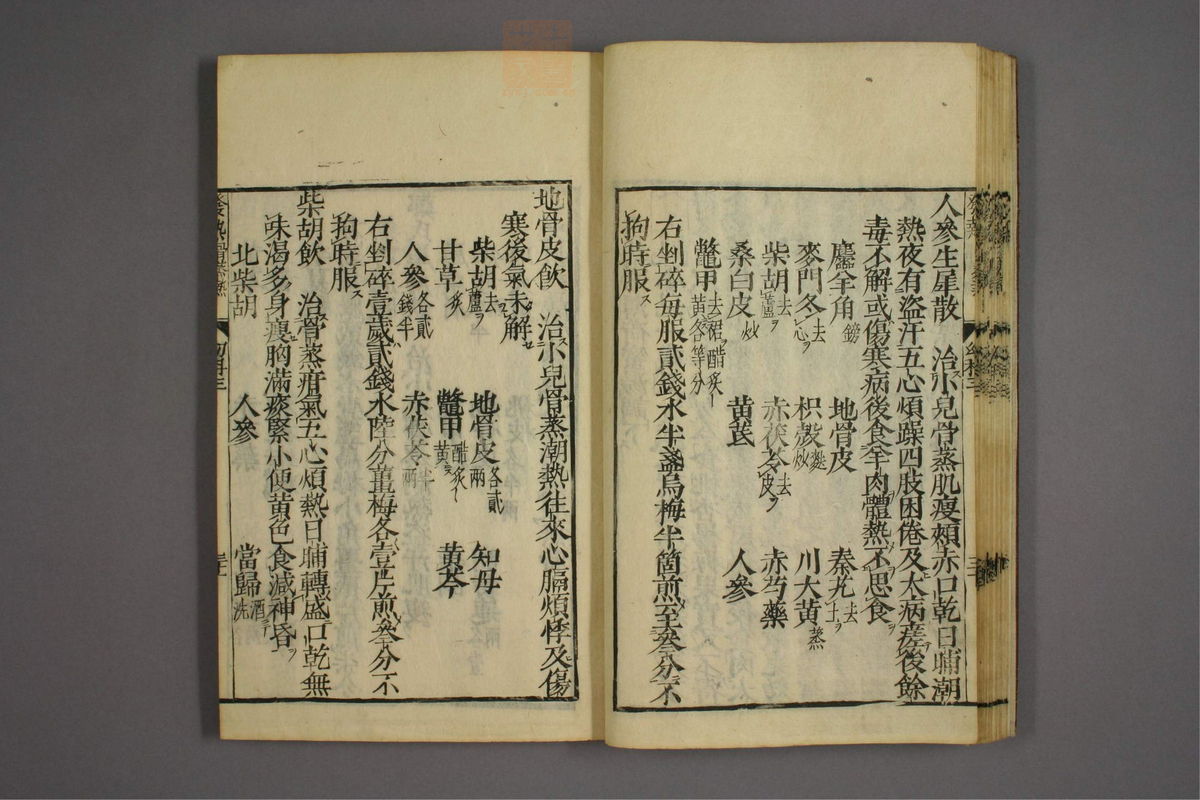 人參生星散 治小兒骨蒸肌瘦頰赤口乾日晡潮
熱夜有盜汗五心煩躁四肢困倦及大病瘥後餘
毒不解或傷寒病後食羊肉體熱不思食
羚羊角鎊 地骨皮 秦艽去土
麥門冬去心 枳殼麩炒 川大黃蒸
柴胡去蘆 赤茯苓去皮 赤芍藥
桑白皮炒 黃芪 人參
鱉甲去裙醋炙黃各等分
右剉碎每服貳錢水半盞烏梅半箇煎至叄分不
拘時服
地骨皮飲 治小兒骨蒸潮熱往來心膈煩悸及傷
寒後氣未解
柴胡去蘆 地骨皮各貳兩 知母
甘草炙 鱉甲醋炙黃 黃芩
人參各貳錢半 赤茯苓半兩
右剉碎壹歲貳錢水陸分薑梅各壹片煎叄分不
拘時服
柴胡飲 治骨蒸疳氣五心煩熱日晡轉盛口乾無
味渴多身瘦胸滿痰緊小便黃色食減神昏
北柴胡 人參 當歸酒洗